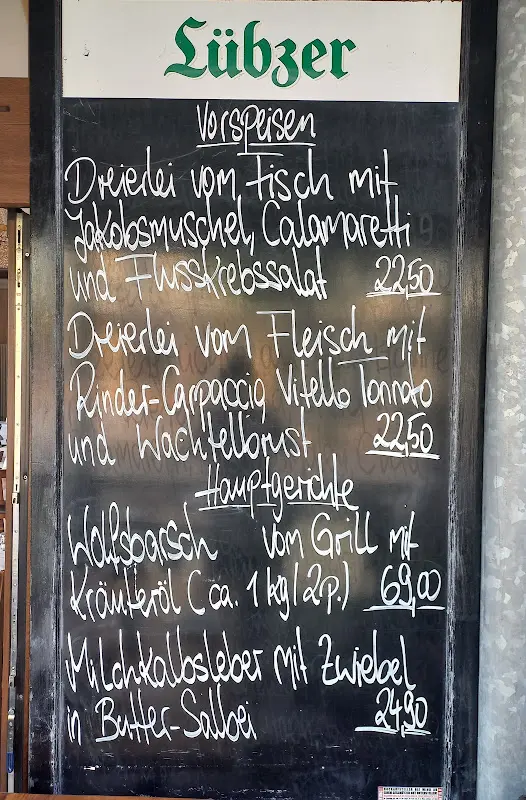 Lübzer
Vorspeisen
Dreierlei vom Fisch mit
Jakobsmuschel, Calamaretti
und Flusskrebssalat 22,50
Dreierlei vom Fleisch mit
Rinder-Carpaccio, Vitello Tonnato
und Wachtelbrust 22,50
Hauptgerichte
Wolfsbarsch vom Grill mit
Kräuteröl Cca. 1kg/2p.) 69,00
Milchkalbsleber mit Zwiebel
in Butter-Salbei 24,90